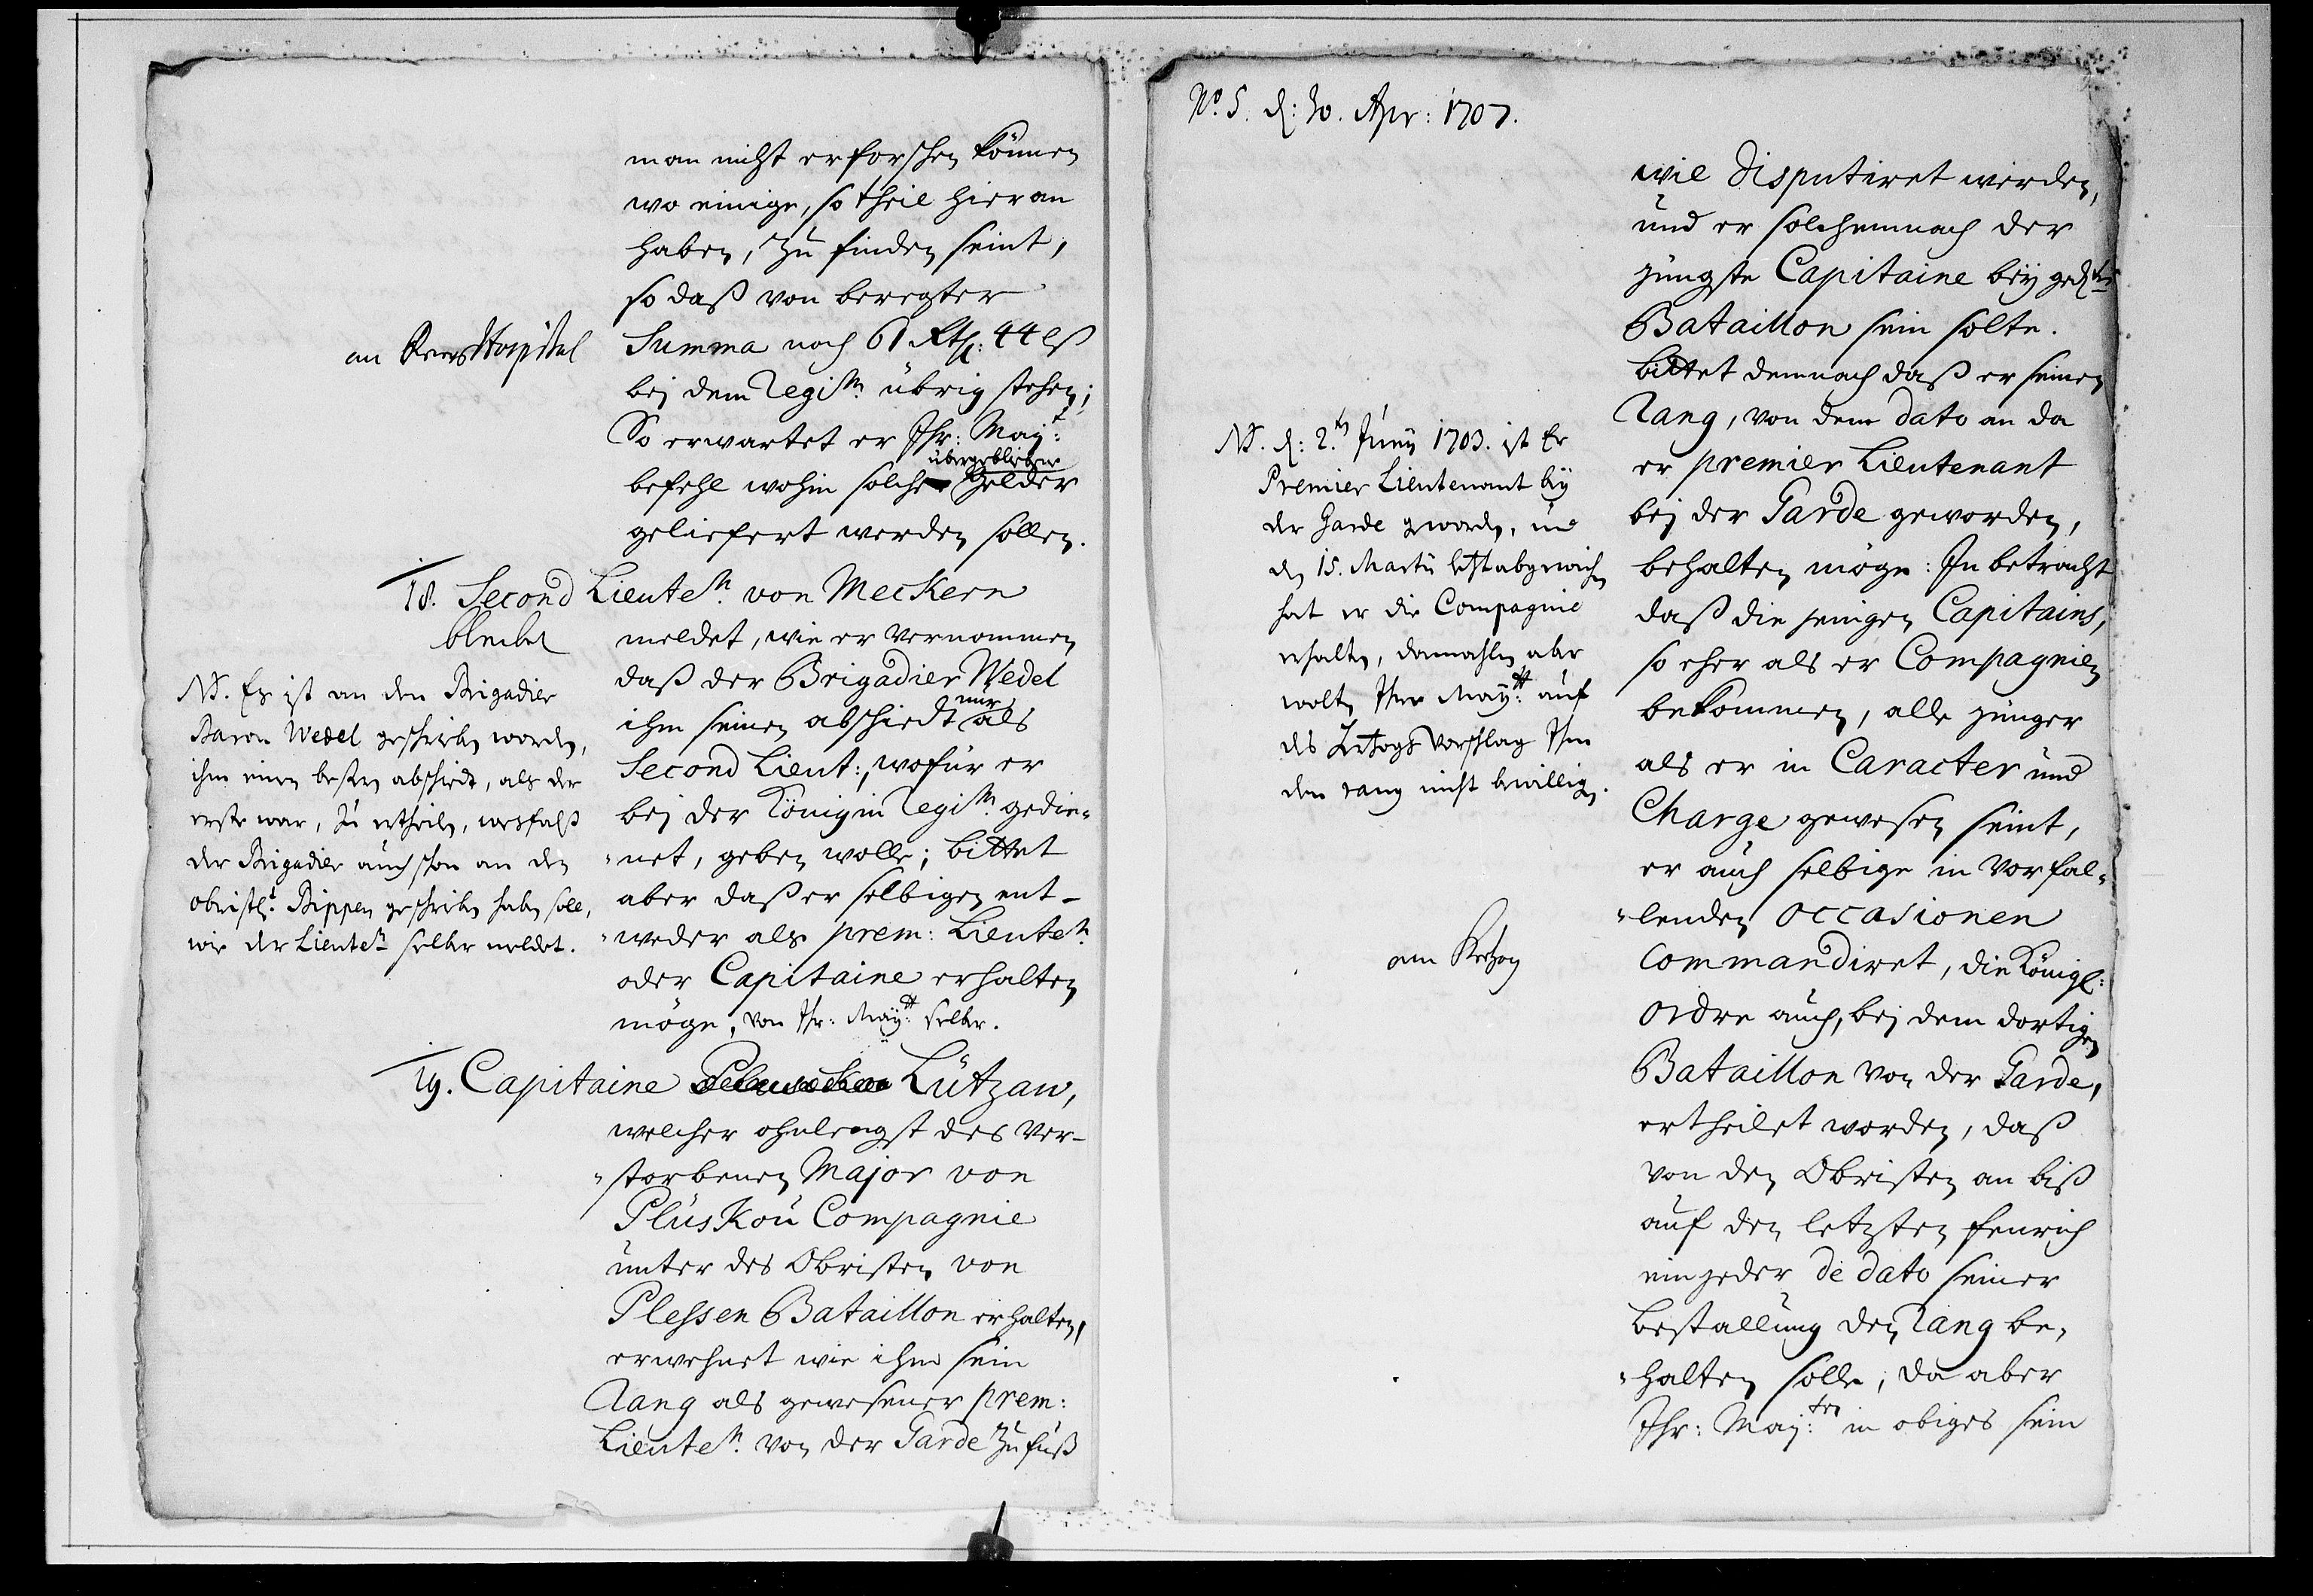 man nicht erforschen können
wo einige, so theil hieran
haben, zu finden seint,
so daß von beregter
Summa noch 61 Rth: 44 ß
bej dem Regitn übrig stehen;
So erwartet er Ihr: Mayt:
übergebliebene
befehl wohin solche Gelder
geliefert werden sollen.
an Hospital
18. Second Lieutetn. von Meckern
meldet, wie er vernommen
daß der Brigadier Wedel
nur
ihm seinen abschiedt als
Second Lieut:, wofür er
bej der Königin Regitn gedie-
net, geben wolle; bittet
aber daß er selbigen ent-
weder als prem: Lieutetn.
oder Capitaine erhalten
möge, von Ihr: Maytt: selber.
bleibet
NB. Es ist an den Brigadier
Baron Wedel geschrieben worden,
ihm einen bessern abschiedt, als der
erste war, zu ertheilen, wesfalß
der Brigadier auch schon an den
obristl: Bippen geschrieben haben soll,
wie der Lieutetn selber meldet.
19. Capitaine Lützaw,
welcher ohnlengst des ver-
storbenen Major von
Pluskou Compagnie
unter des Obristen von
Plessen Bataillon erhalten,
erwehnet wie ihm sein
Rang als gewesener prem:
Lieutetn. von der Garde zu fuß
No. 5. d: 30. Apr: 1707.
wil disputiret werden,
und er solchemnach der
jüngste Capitaine bey gedte
Bataillon sein solte.
bittet demnach daß er seinen
Rang, von dem dato an da
er premier Lieutenant
bej der Garde geworden,
behalten möge: In betracht
daß die jenigen Capitains,
so eher als er Compagnien
bekommen, alle jünger
als er in Caracter und
Charge gewesen seint,
er auch selbige in vorfal-
lenden occasionen
commandiret, die Königl:
ordre auch, bej dem dortigen
Bataillon von der Garde,
ertheilet worden, daß
von den Obristen an biß
auf den letzten fenrich
ein jeder de dato seiner
bestallung den Rang be-
halten solle; da aber
Ihr: May:ten in obiges sein
NB. d: 2.ten Juny 1703. ist Er
Premier Lieutenant bey
der Garde geworden, und
den 15. Martii letztabgewichen
hat er die Compagnie
erhalten, damahlen aber
wolten Ihro Maytt: auf
des Hertzogs vorschlag Ihm
den rang nicht bewilligen.
am Hertzog